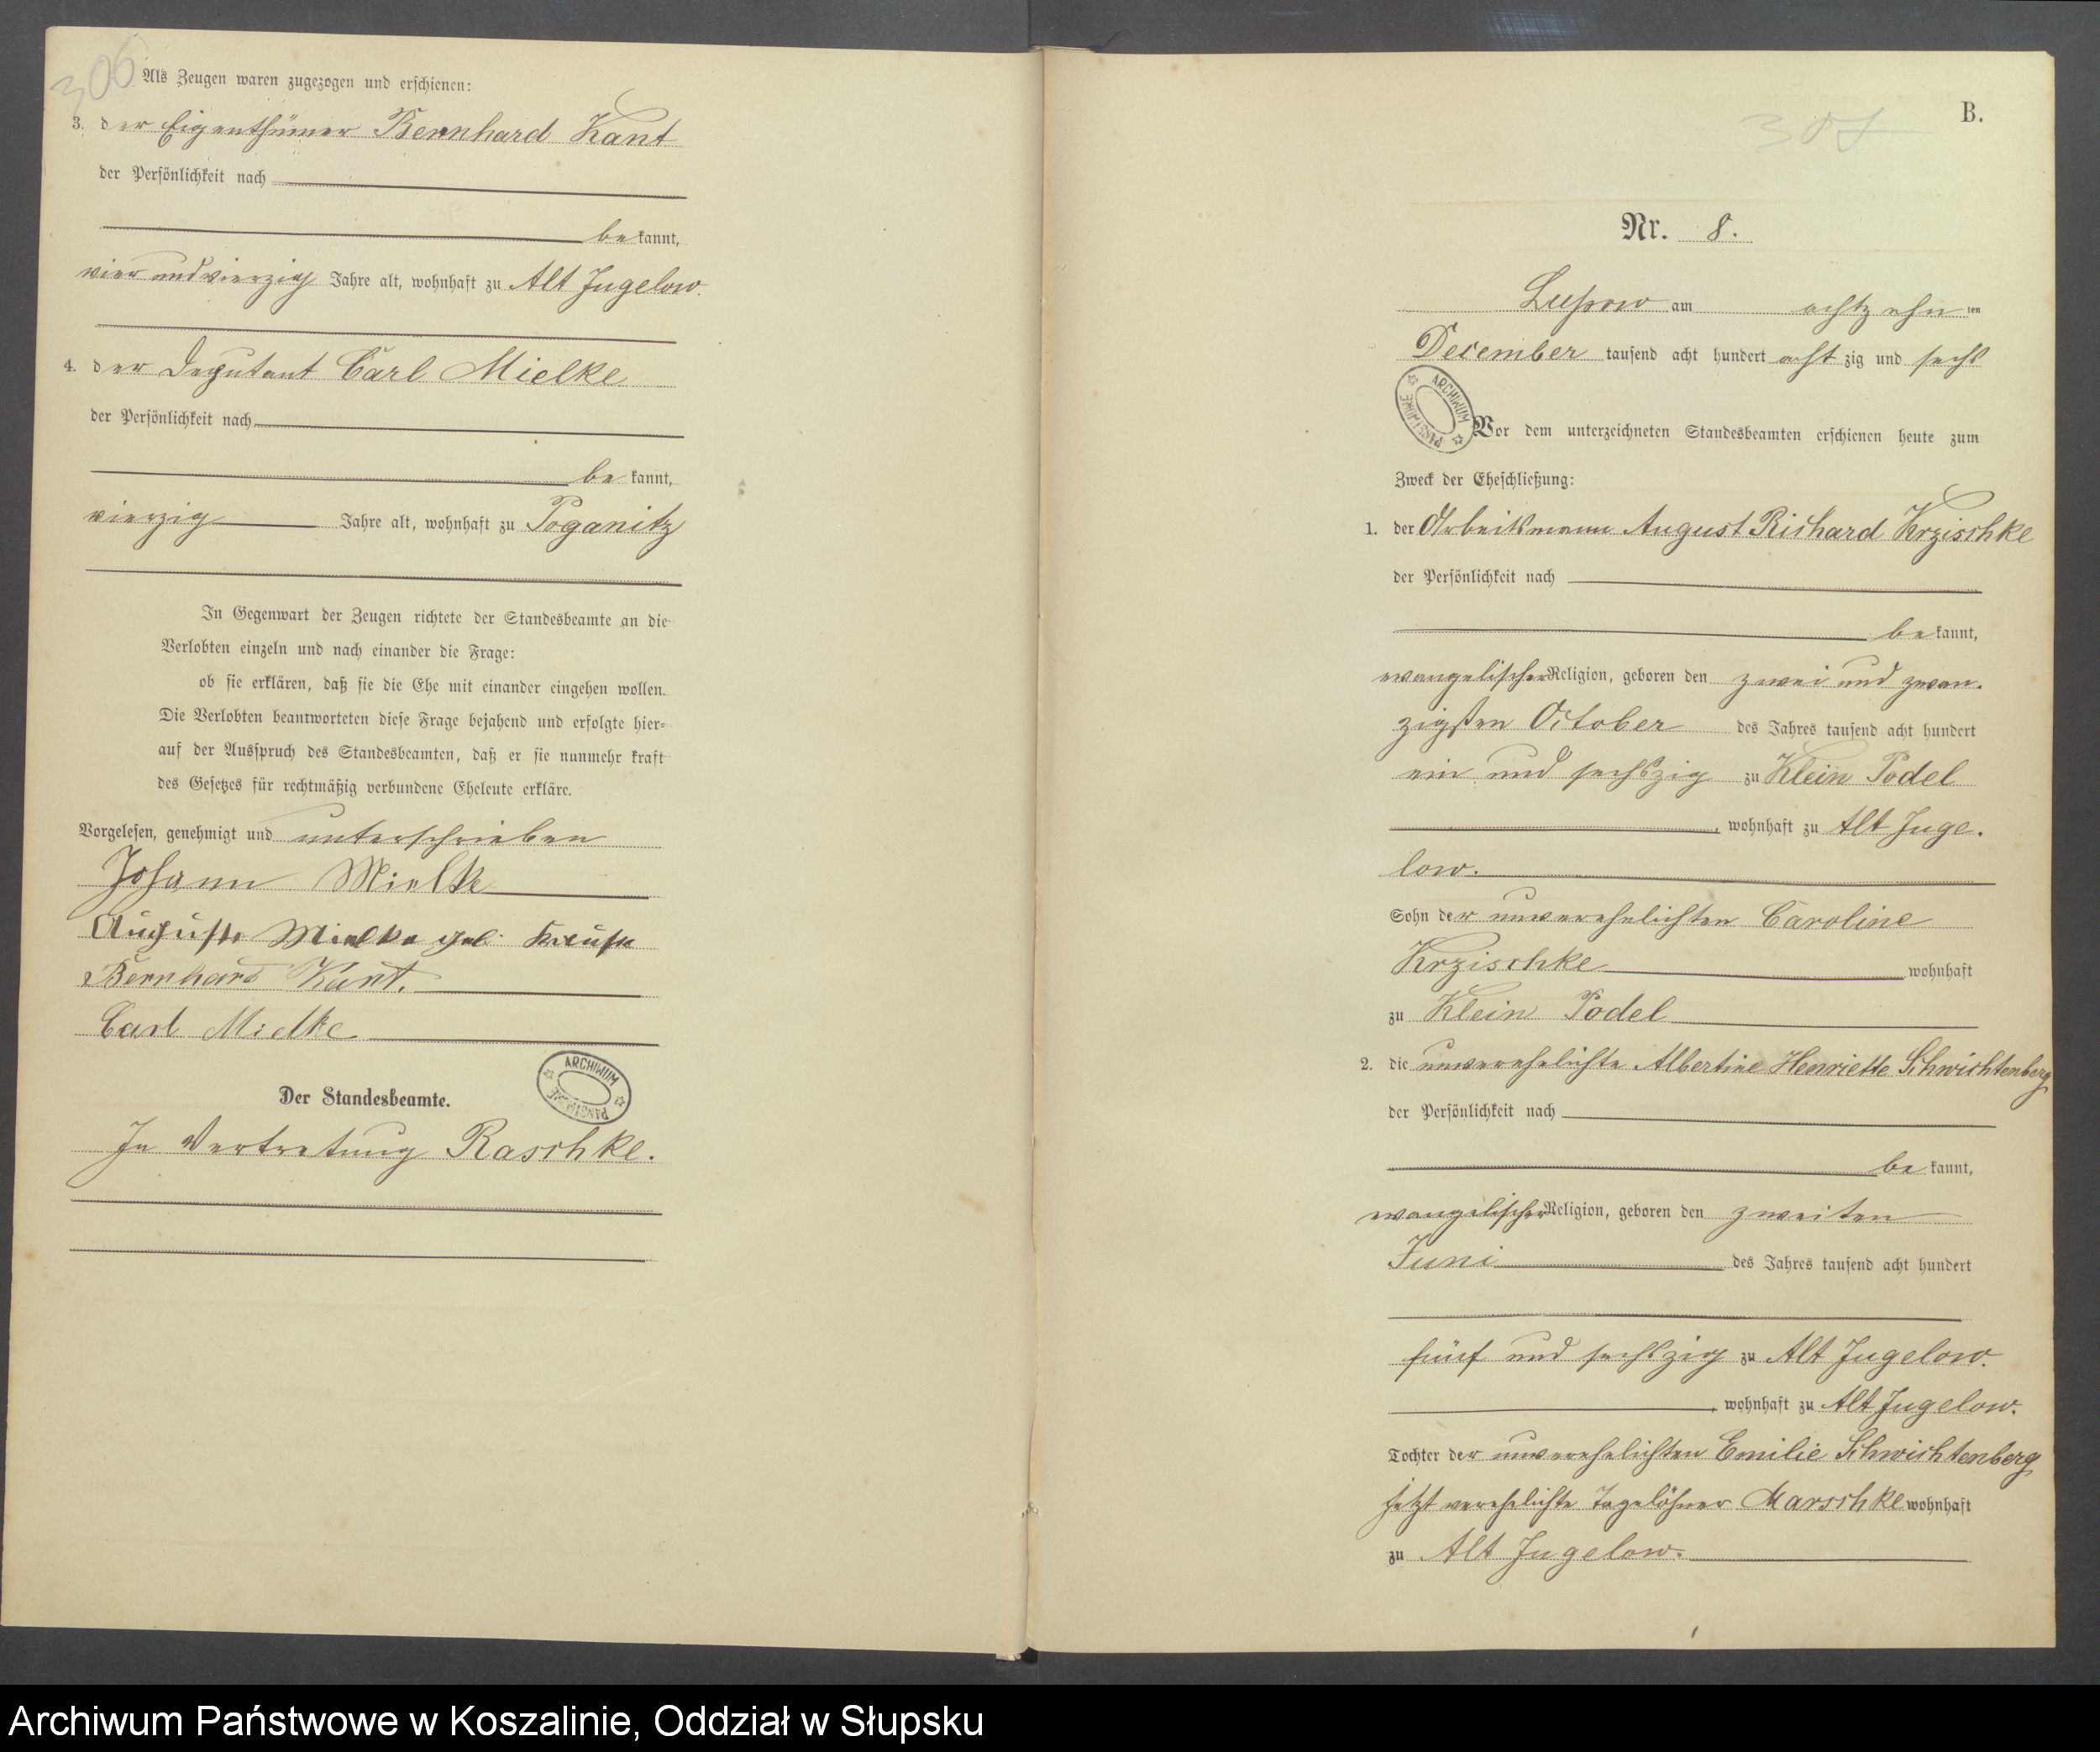 306
Als Zeugen waren zugezogen und erschienen:
3. der Eigenthümer Bernhard Kant
der Persönlichkeit nach
be kannt,
vier und vierzig Jahre alt, wohnhaft zu Alt Jugelow.
4. der Deputant Carl Mielke
der Persönlichkeit nach
be kannt,
vierzig Jahre alt, wohnhaft zu Poganitz
In Gegenwart der Zeugen richtete der Standesbeamte an die
Verlobten einzeln und nach einander die Frage:
ob sie erklären, daß sie die Ehe mit einander eingehen wollen.
Die Verlobten beantworteten diese Frage bejahend und erfolgte hier-
auf der Ausspruch des Standesbeamten, daß er sie nunmehr kraft
des Gesetzes für rechtmäßig verbundene Eheleute erkläre.
Vorgelesen, genehmigt und unterschrieben
Johann Mielke
Auguste Mielke geb. Krause
Bernhard Kant.
Carl Mielke
ARCHIWUM PAŃSTWOWE
Der Standesbeamte.
In Vertretung Raschke.
B.
307
Nr. 8.
Lupow am achtzehn ten
December tausend acht hundert acht zig und sechs
ARCHIWUM PAŃSTWOWE
Vor dem unterzeichneten Standesbeamten erschienen heute zum
Zweck der Eheschließung:
1. der Arbeitsmann August Richard Krzischke
der Persönlichkeit nach
be kannt,
evangelischer Religion, geboren den zwei und zwan-
zigsten October des Jahres tausend acht hundert
ein und sechszig zu Klein Podel
, wohnhaft zu Alt Juge-
low.
Sohn der unverehelichten Caroline
Krzischke wohnhaft
zu Klein Podel
2. die unverehelichte Albertine Henriette Schwichtenberg
der Persönlichkeit nach
be kannt,
evangelischer Religion, geboren den zweiten
Juni des Jahres tausend acht hundert
fünf und sechszig zu Alt Jugelow.
, wohnhaft zu Alt Jugelow.
Tochter der unverehelichten Emilie Schwichtenberg
jetzt verehelichte Tagelöhner Marschke wohnhaft
zu Alt Jugelow.
Archiwum Państwowe w Koszalinie, Oddział w Słupsku